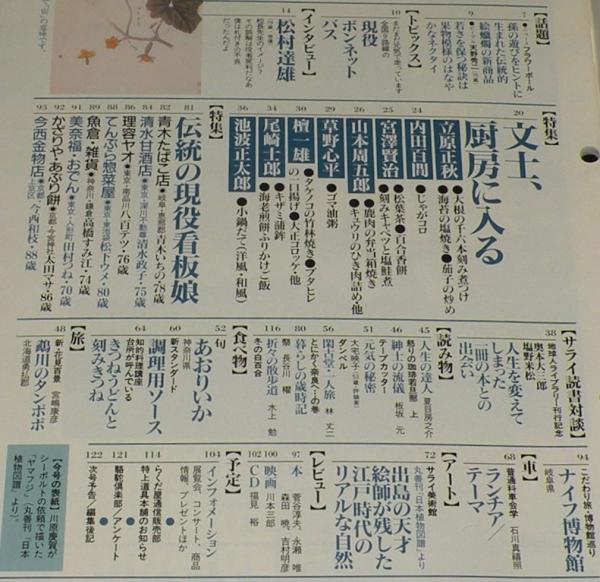 【話題】
7
孫の遊びをヒントに
生まれた伝統的
絵蠟燭の新商品
●フラワーボール
9
若さを保つ秘訣は
果物模様のはなや
かなネクタイ
●天野秀二
【トピックス】
10
まだまだ元気で走っています
全国9路線の
現役
ボンネット
バス
【インタビュー】
14
松村達雄
松長先生のイメージ?
その頃の彼は老眼死だなあ
僕は札付きの不良
だったんだよ
【特集】
20
文士、
厨房に入る
立原正秋
●大根の千六本刻み煮つけ
●海苔の塩焼き●茄子の炒め
24
内田百閒
●じゃがコロ
25
宮澤賢治
●松葉茶●百合香餅
●刻みキャベツと塩鮭煮
26
山本周五郎
●鹿肉の弁当箱焼き
●キュウリのひき肉詰め・他
29
草野心平
●ゴマ油粥
30
檀一雄
●タケノコの竹林焼き●ブタヒレ
の一口揚げ●大正コロッケ・他
34
尾崎士郎
●キザミ蒲鉾
●海老煎餅ふりかけご飯
36
池波正太郎
●小鍋だて(洋風・和風)
【特集】
81
伝統の現役看板娘
82
青木たばこ店●岐阜・恵那郡 青木いちの・78歳
84
清水甘酒店●東京・深川不動尊 清水政子・75歳
86
理容ヤオ●東京・南品川 八百テツ・76歳
88
てんぷら惣菜屋●東京・東池袋 松下トメ・80歳
89
魚倉・雑貨●神奈川・鎌倉 高橋すみ江・74歳
91
美奈福・おでん●東京・人形町 田村つね・70歳
92
かざりや・あぶり餅●京都・今宮神社 太田マサ・86歳
93
今西金物店●京都・上京区 今西和枝・88歳
【サライ読書対談】
38
地球人ライブラリー刊行記念
奥本大三郎
塩野米松
人生を変えて
しまった
一冊の本との
出会い
【読み物】
45
人生の達人 夏目房之介
怒りの珈琲若旦那 上
46
紳士の流儀 板坂 元
テープカッター
51
元気の秘密
大宅映子(53歳・評論家)
ダンベル
56
閑古堂一人旅 林 丈二
とにかく奈良へ…の巻
80
暮らしの歳時記
鱧 長谷川 櫂
124
折々の散歩道 水上 勉
冬の百日合
【食べ物】
52
旬
あおりいか
神奈川県
60
新スタンダード
調理用ソース
64
知的料理講座
台所が呼んでいる
きつねうどんと
刻みきつね
【旅】
48
新・花見百景 宮嶋康彦
鵡川のタンポポ
北海道勇払郡
94
こだわり旅・博物館巡り
ナイフ博物館
岐阜県
【車】
68
普通科車会学 石川真禧照
ランチア/
テーマ
【アート】
72
サライ美術館
丸善刊『日本植物図譜』より
出島の天才
絵師が残した
江戸時代の
リアルな自然
【レビュー】
97
本
菅谷淳夫、永瀬 唯
森田 暁、吉村明彦
100
映画 川本三郎
102
CD 福見 裕
【予定】
104
インフォメーション
展覧会、コンサート、商品
情報、プレゼントほか
114
●らくだ屋通信販売部
特上道具本舗のお知らせ
121
駱駝倶楽部/アンケート
122
次号予告/編集後記
【今号の表紙】川原慶賀が
シーボルトの依頼で描いた
「ヤマフジ」/丸善刊『日本
植物図譜』より。